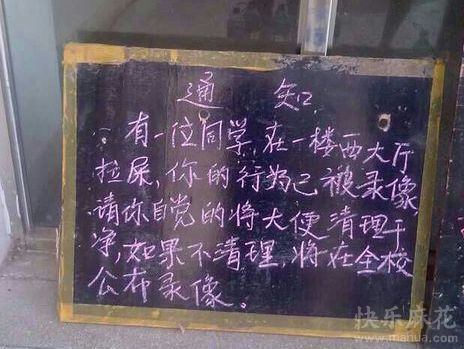 通知
有一位同学,在一楼西大厅
拉屎,你的行为已被录像,
请你自觉的将大便清理干
净,如果不清理,将在全校
公布录像。
快乐麻花
www.mahua.com